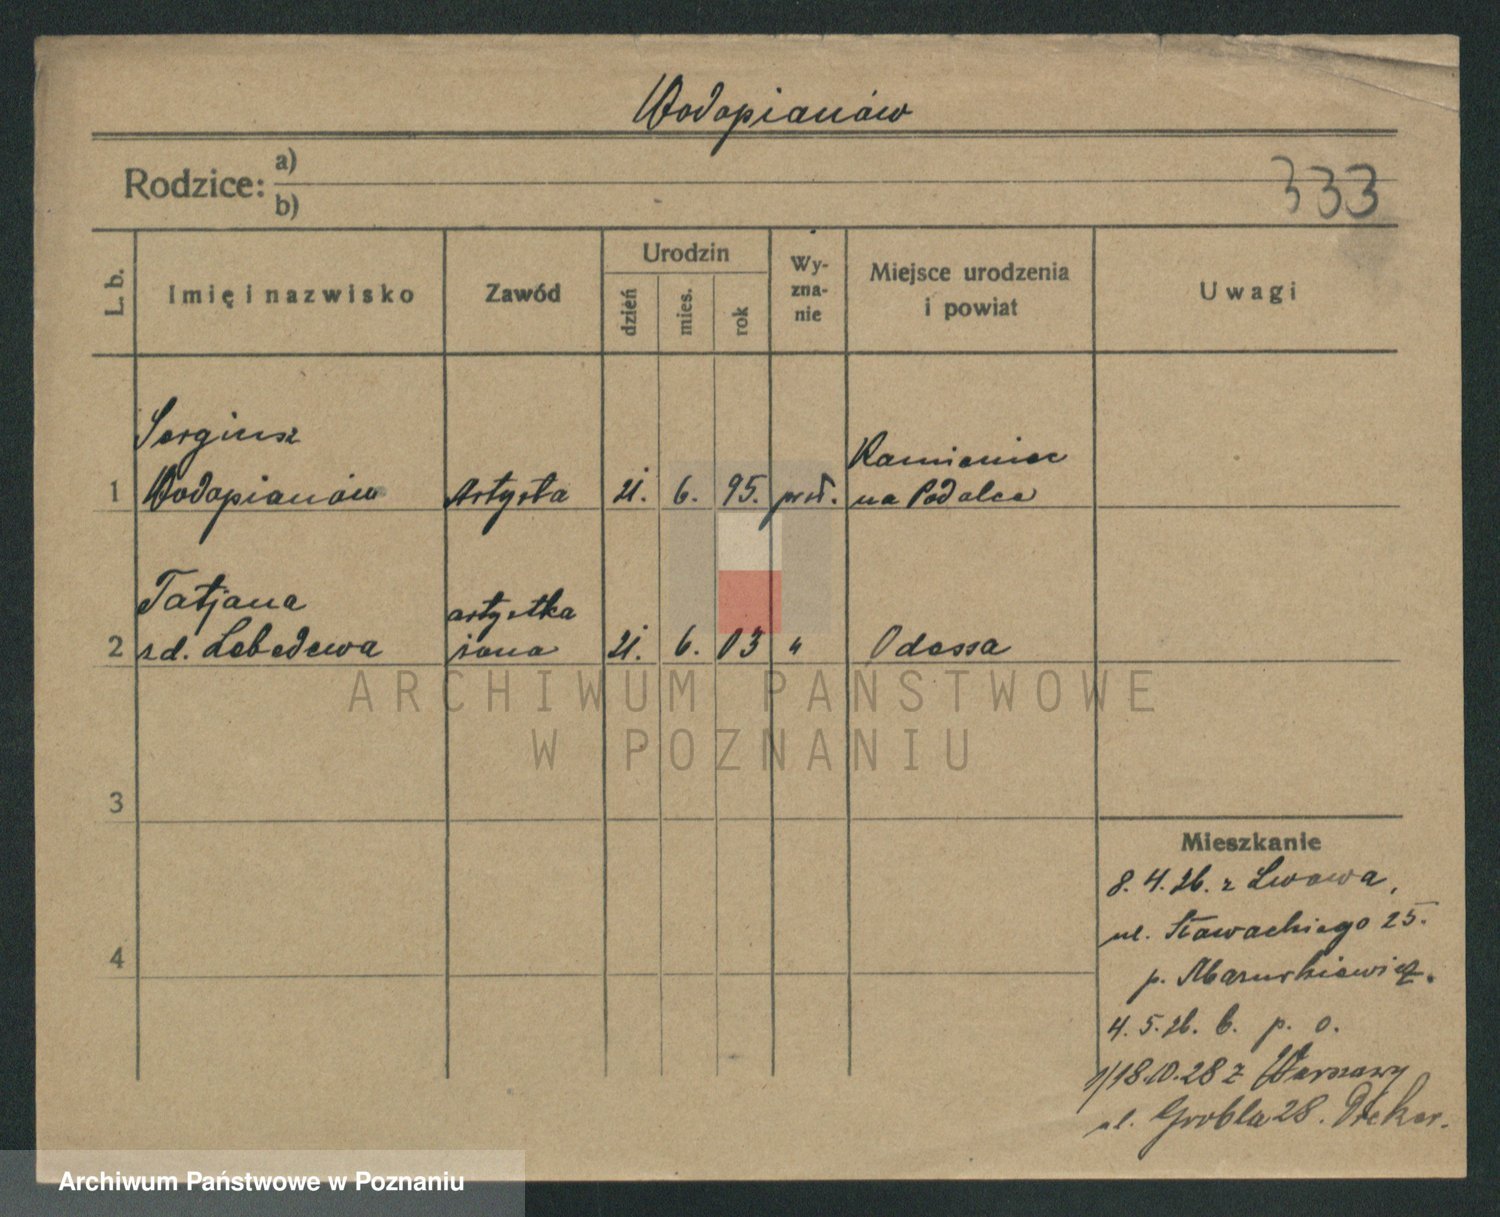 Wodopianów
Rodzice: a)
b)
333
L. b.
Imię i nazwisko
Zawód
Urodzin
dzień
mies.
rok
Wy-
zna-
nie
Miejsce urodzenia
i powiat
Uwagi
Sergiusz
Kamieniec
1 Wodopianów Artysta 21. 6. 95. prał. na Podolce
Tatjana artystka
2 zd. Lebedewa żona 21. 6. 03 " Odessa
ARCHIWUM PAŃSTWOWE
W POZNANIU
3
Mieszkanie
8. 4. 26. z Lwowa,
ul. 25.
4
p.
4. 5. 26. b. p. o.
1/18.10.28 z Warszawy
ul. Grobla 28.
Archiwum Państwowe w Poznaniu